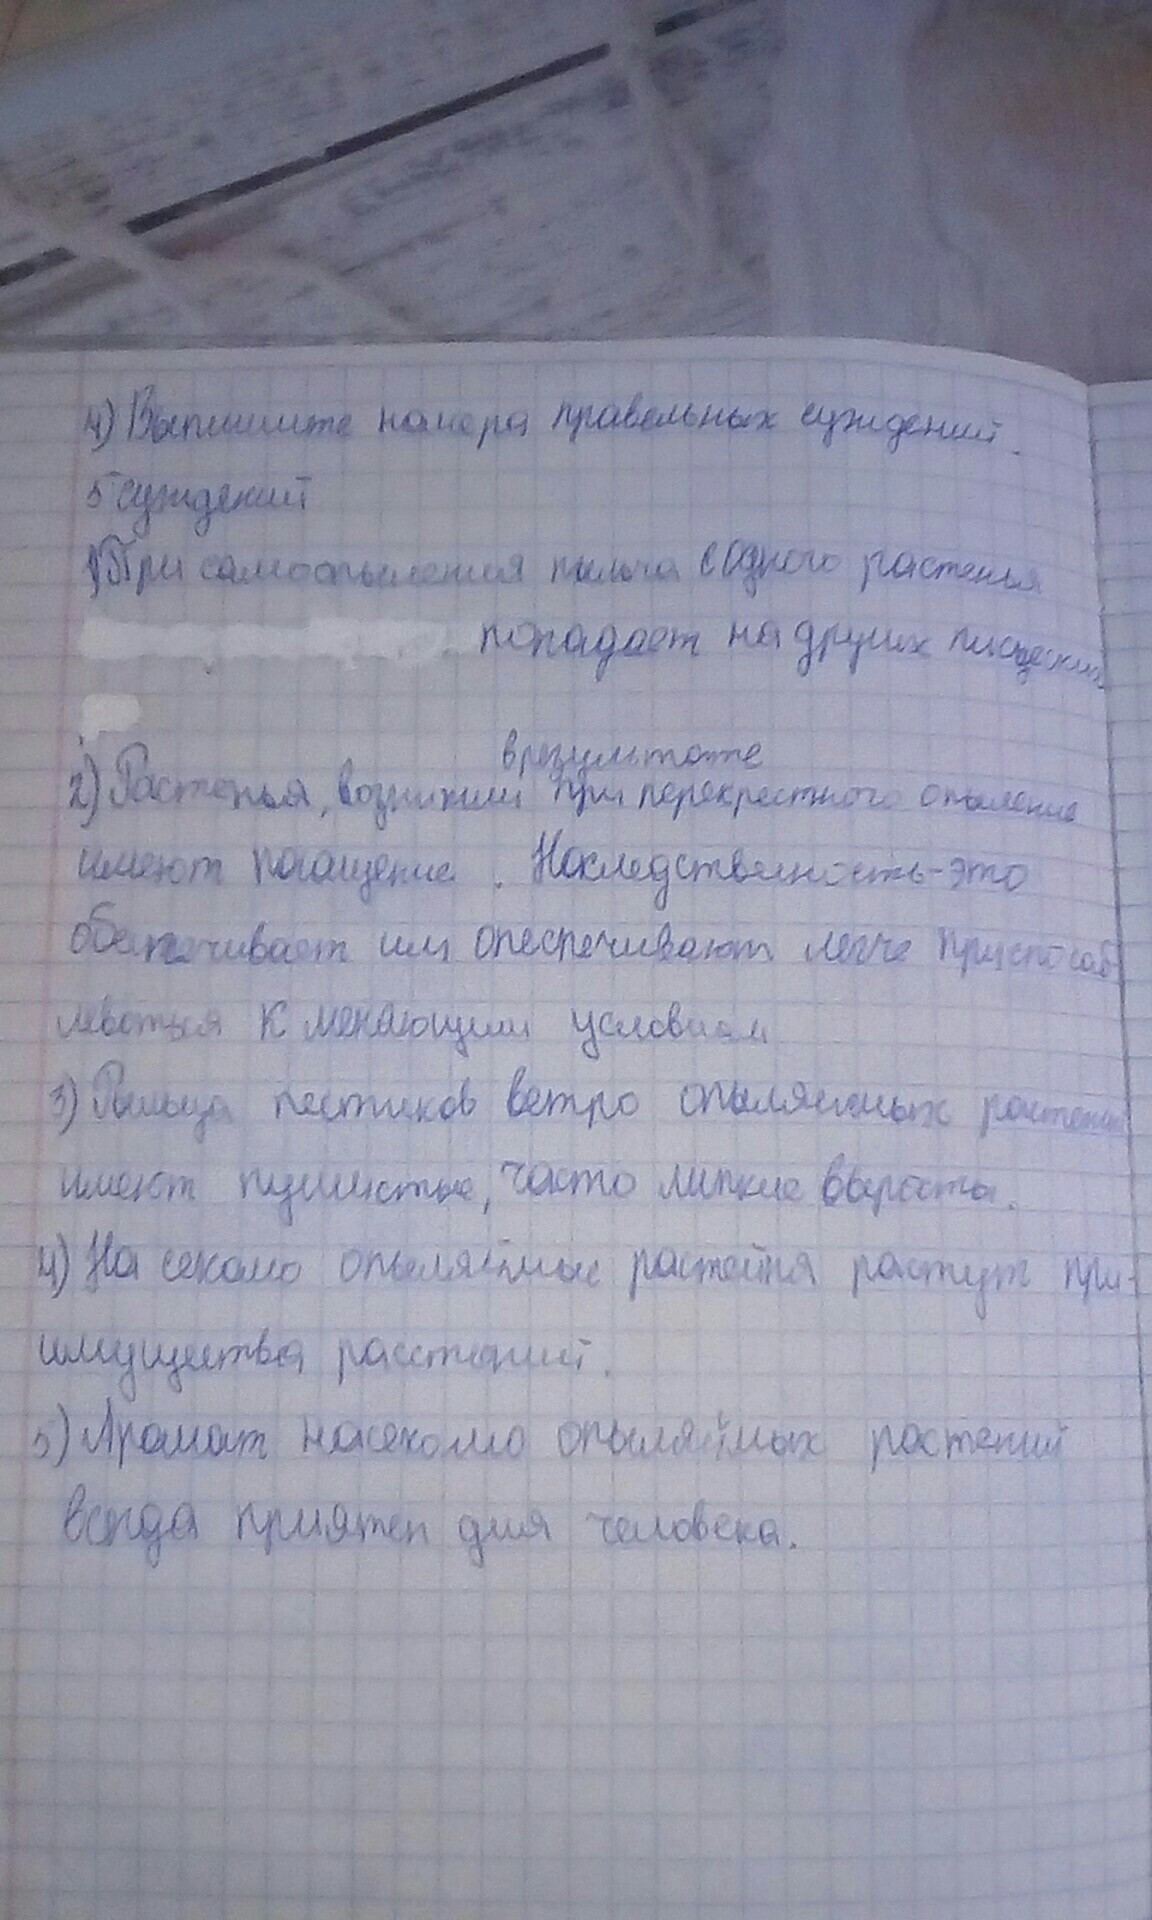 4) Выпишите намера правельных суждений.
5 суждений
1) При самоопыления пыльца с одного растенья
попадает на других
в результате
2) Растенья, возникши при перекрестного опыление
имеют . Наследственность-это
обеспечивает или опеспечивают легче приспосаб
леваться к меняющим условиям
3) Рыльца пестиков ветро опыляемых растений
имеют пушистые, часто липкие выросты.
4) На секомо опыляймые растейня растут при-
имущества расстаний.
5) Аромат насекомо опыляймых растений
всегда приятен для человека.